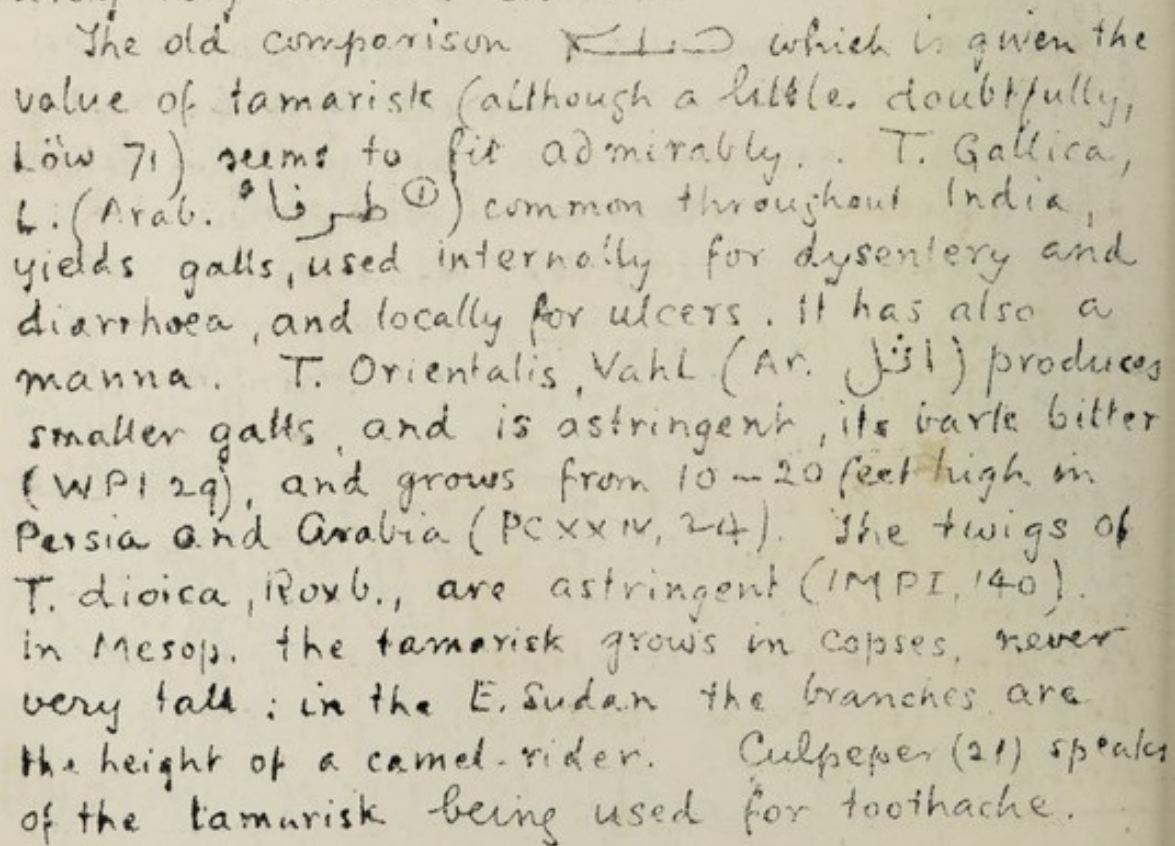 The old comparison which is given the
value of tamarisk (although a little. doubtfully,
Löw 71) seems to fit admirably. . T. Gallica,
L. (Arab. طرفاء ①) common throughout India,
yields galls, used internally for dysentery and
diarrhoea, and locally for ulcers. It has also a
manna. T. Orientalis, Vahl (Ar. اثل) produces
smaller galls, and is astringent, its bark bitter
(WPI 29), and grows from 10-20 feet high in
Persia and Arabia (PC XXIV, 24). The twigs of
T. dioica, Roxb., are astringent (IMPI, 140).
In Mesop. the tamarisk grows in copses, never
very tall; in the E. Sudan the branches are
the height of a camel-rider. Culpeper (21) speaks
of the tamarisk being used for toothache.